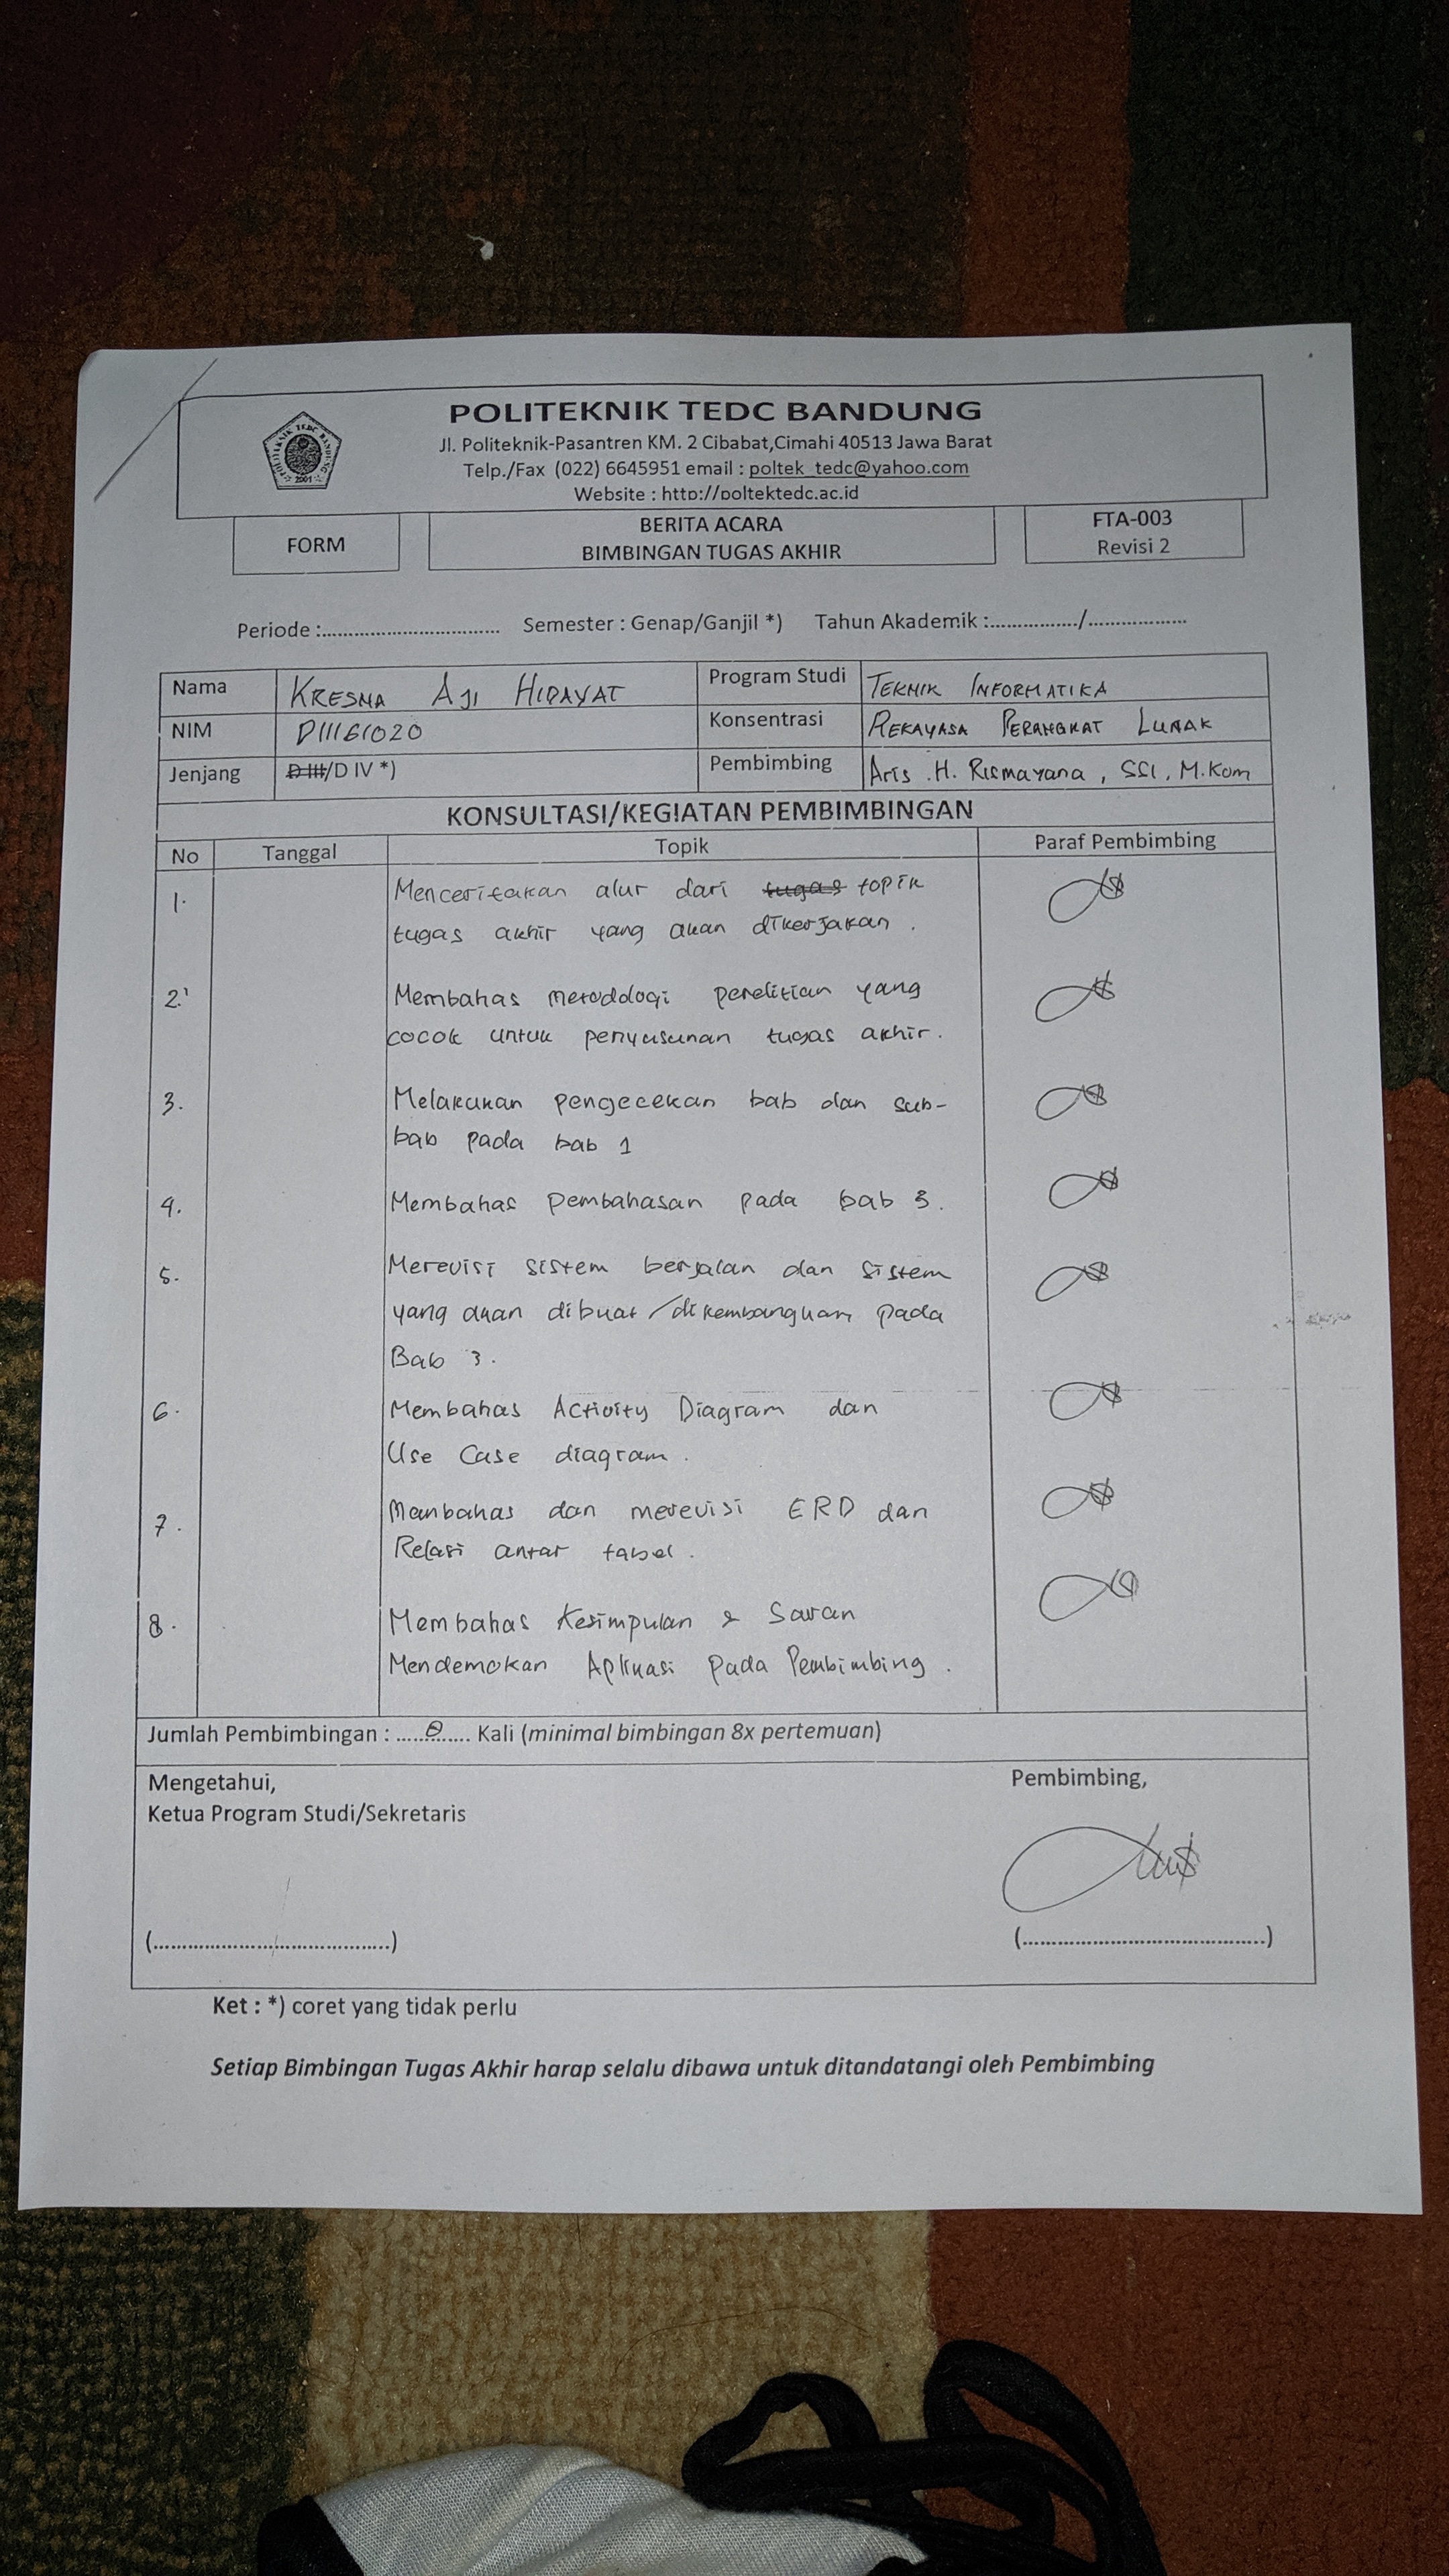 POLITEKNIK TEDC BANDUNG
Jl. Politeknik-Pasantren KM. 2 Cibabat,Cimahi 40513 Jawa Barat
Telp./Fax (022) 6645951 email : poltek_tedc@yahoo.com
Website : http://poltektedc.ac.id
POLITEKNIK TEDC BANDUNG
2001
FORM
BERITA ACARA
BIMBINGAN TUGAS AKHIR
FTA-003
Revisi 2
Periode :................................. Semester : Genap/Ganjil *) Tahun Akademik :................/..................
Nama KRESNA AJI HIDAYAT Program Studi TEKNIK INFORMATIKA
NIM D111161020 Konsentrasi REKAYASA PERANGKAT LUNAK
Jenjang D III/D IV *) Pembimbing Aris .H. Rismayana , SSI, M.Kom
KONSULTASI/KEGIATAN PEMBIMBINGAN
No Tanggal Topik Paraf Pembimbing
1. Menceritakan alur dari tugas topik
tugas akhir yang akan dikerjakan .
2. Membahas metodologi penelitian yang
cocok untuk penyusunan tugas akhir.
3. Melakukan pengecekan bab dan sub-
bab pada bab 1
4. Membahas pembahasan pada bab 3.
5. Merevisi sistem berjalan dan sistem
yang akan dibuat /dikembangkan pada
Bab 3.
6. Membahas Activity Diagram dan
Use Case diagram .
7. Membahas dan merevisi ERD dan
Relasi antar tabel .
8. Membahas Kesimpulan & Saran
Mendemokan Aplikasi pada Pembimbing .
Jumlah Pembimbingan : .....8...... Kali (minimal bimbingan 8x pertemuan)
Mengetahui, Pembimbing,
Ketua Program Studi/Sekretaris
(..........................................) (..........................................)
Ket : *) coret yang tidak perlu
Setiap Bimbingan Tugas Akhir harap selalu dibawa untuk ditandatangi oleh Pembimbing